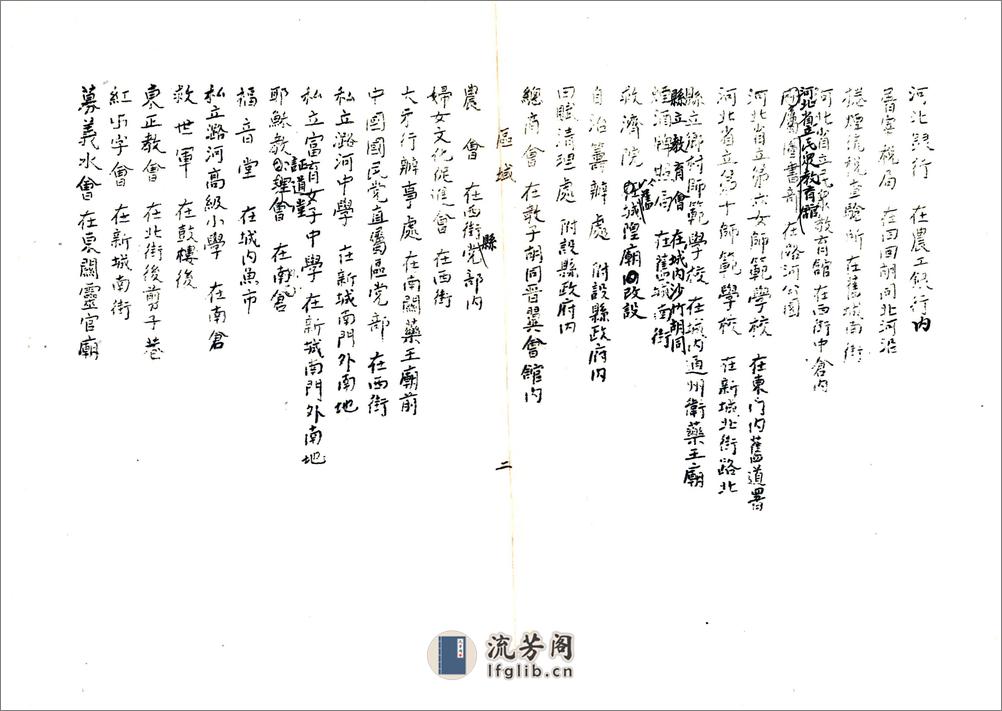 河北銀行　在農工銀行內
屠宰稅局　在回回胡同北河沿
捲煙統稅查驗所　在舊城南街
河北省立民眾教育館　在西街中倉內
河北省立民眾教育館附屬圖書部　在潞河公園
河北省立第六女師範學校　在東門內舊道署
河北省立第十師範學校　在新城北街路北
縣立鄉村師範學校　在城內通州衛藥王廟
縣立教育會　在城內沙竹胡同
酒牌照局　在舊城南街
救濟院　在舊城隍廟改設
自治籌辦處　附設縣政府內
田賦清理處　附設縣政府內
總商會　在敢子胡同晉翼會館內
區域
二
農會　在西街縣党部內
婦女文化促進會　在西街
大牙行辦事處　在南關藥王廟前
中國國民党直屬區党部　在西街
私立潞河中學　在新城南門外南地
私立富育女子中學　在新城南門外南地
耶穌教會證道堂　在南倉
福音堂　在城內魚市
私立潞河高級小學　在南倉
救世軍　在鼓樓後
東正教會　在北街後剪子巷
紅卍字會　在新城南街
募義水會　在東關靈官廟
流芳阁
lfglib.cn